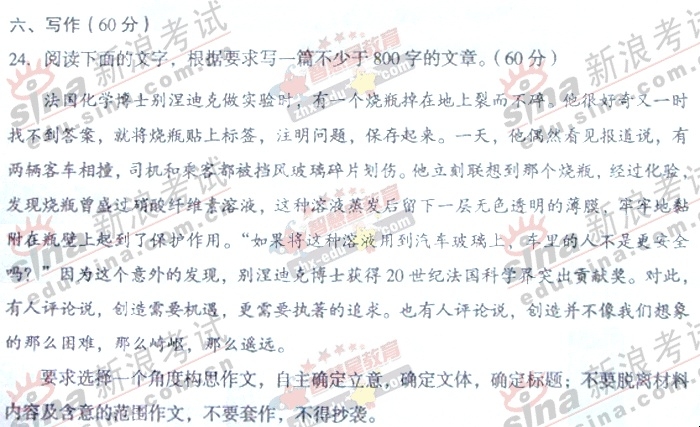 六、写作(60分)
24．阅读下面的文字，根据要求写一篇不少于800字的文章。(60分)
法国化学博士别涅迪克做实验时，有一个烧瓶掉在地上裂而不碎。他很好奇又一时
找不到答案，就将烧瓶贴上标签，注明问题，保存起来。一天，他偶然看见报道说，有
两辆客车相撞，司机和乘客都被挡风玻璃碎片划伤。他立刻联想到那个烧瓶，经过化验，
发现烧瓶曾盛过硝酸纤维素溶液，这种溶液蒸发后留下一层无色透明的薄膜，牢牢地黏
附在瓶壁上起到了保护作用。“如果将这种溶液用到汽车玻璃上，车里的人不是更安全
吗？”因为这个意外的发现，别涅迪克博士获得20世纪法国科学界突出贡献奖。对此，
有人评论说，创造需要机遇，更需要执著的追求。也有人评论说，创造并不像我们想象
的那么困难，那么崎岖，那么遥远。
要求选择一个角度构思作文，自主确定立意，确定文体，确定标题；不要脱离材料
内容及含意的范围作文，不要套作，不得抄袭。
sina 新浪考试
edu.sina.com.cn
智慧星教育
zhx-edu.com